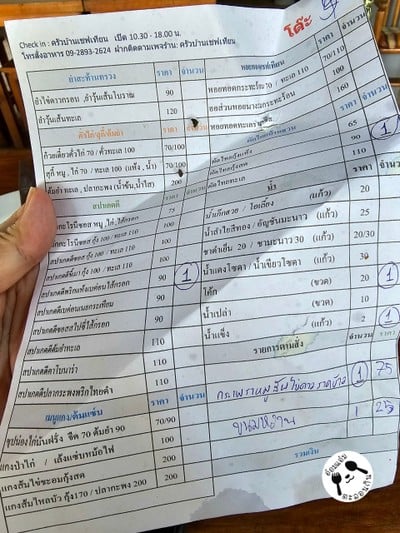 Check in : ครัวบ้านเชฟเทียน เปิด 10.30 - 18.00 น.
โทรสั่งอาหาร 09-2893-2624 ฝากติดตามเพจร้าน: ครัวบ้านเชฟเทียน
โต๊ะ
ยำสะท้านทรวง ราคา จำนวน
ยำไข่ดาวกรอบ , ยำวุ้นเส้นโบราณ 90
ยำวุ้นเส้นทะเล 120
ราคา จำนวน
ก๋วยเตี๋ยวคั่วไก่ 70 / คั่วทะเล 100 70/100
สุกี้ หมู , ไก่ 70 / ทะเล 100 (แห้ง , น้ำ) 70/100
200
สปาเกตตี ราคา จำนวน
75
100
100
สปาเกตตีพริกแห้งเบค่อนไส้กรอก 90 1
สปาเกตตีเบค่อนเนยกระเทียม 90
สปาเกตตีซอสสไปซี่ไส้กรอก 90
สปาเกตตีต้มยำทะเล 110
สปาเกตตีคาโบนาร่า 110
สปาเกตตีปลากระพงพริกไทยดำ 110
เมนูแกง/ต้มแซ่บ ราคา จำนวน
ซุปน่องไก่มันฝรั่ง จืด 70 ต้มยำ 90 70/90
แกงป่าไก่ / เล้งแซ่บหม้อไฟ 100
แกงส้มไข่ชะอมกุ้งสด 200
แกงส้มไหลบัว กุ้ง170 / ปลากะพง 200 200
หอยทอดกระทะร้อน 70 / ทะเล 110 70/110
ออส่วนหอยนางรมกระทะร้อน 100
160
65
ผัดไทยกุ้งสด 90 1
ผัดไทยทะเล 110
น้ำ ราคา จำนวน
(แก้ว) 20
น้ำลำไยสีทอง / อัญชันมะนาว (แก้ว) 25
ชาดำเย็น 20 / ชามะนาว 30 (แก้ว) 20/30
น้ำแดงโซดา / น้ำเขียวโซดา (แก้ว) 30
โค้ก (ขวด) 20 1
น้ำเปล่า (ขวด) 10
น้ำแข็ง (แก้ว) 2 1
รายการตามสั่ง จำนวน ราคา
1 75
ขนมหวาน 1 25
รวมเงิน